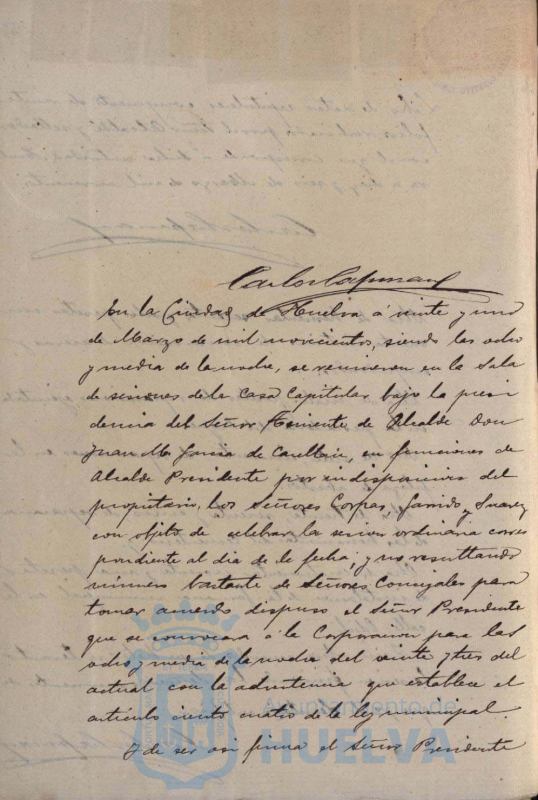 Carlos Cazenave
En la Ciudad de Huelva á veinte y uno
de Marzo de mil novecientos, siendo las ocho
y media de la noche, se reunieron en la Sala
de sesiones de la Casa Capitular bajo la presi
dencia del Señor Teniente de Alcalde Don
Juan M. Garcia de en funciones de
Alcalde Presidente por indisposicion del
propietario, los Señores Corpas, Garrido y Suarez
con objeto de celebrar la sesion ordinaria corres
pondiente al dia de la fecha; y no resultando
número bastante de Señores Concejales para
tomar acuerdo dispuso el Señor Presidente
que se convocara á la Corporacion para las
ocho y media de la noche del veinte y tres del
actual con la advertencia que establece el
artículo ciento cuatro de la ley municipal.
Y de ser asi firma el Señor Presidente
Ayuntamiento de
HUELVA